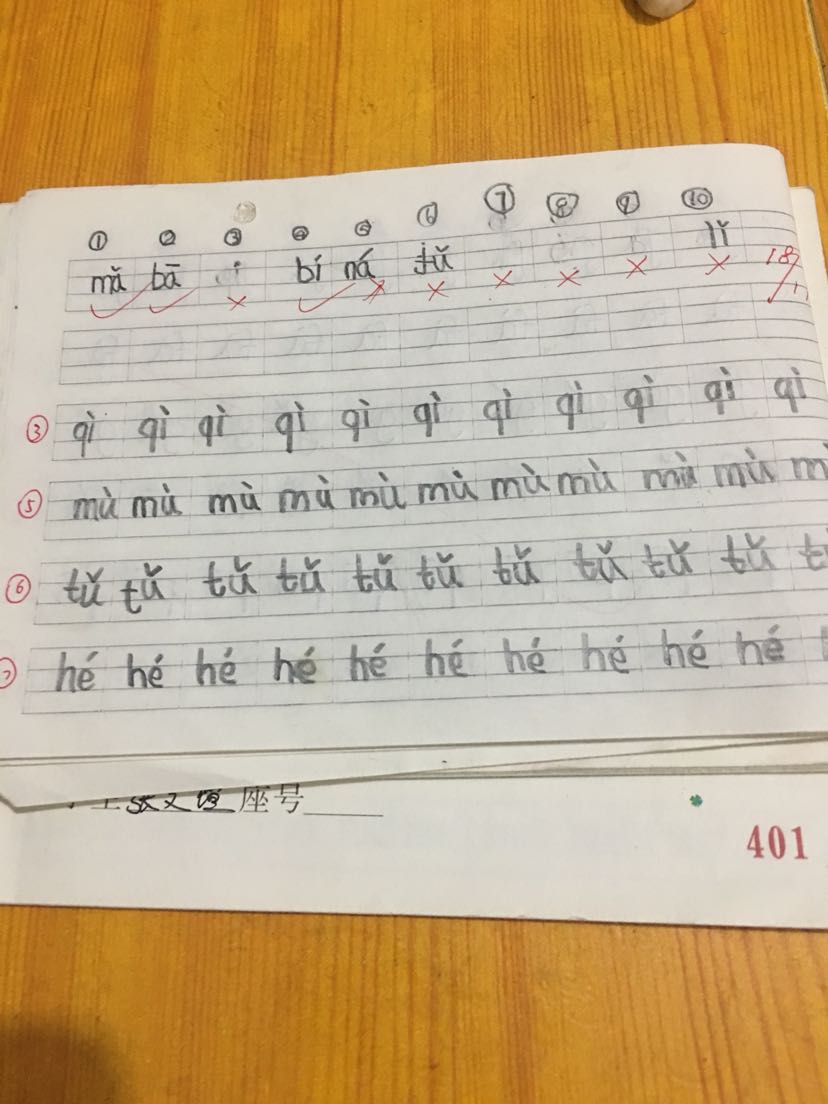 ① ② ③ ④ ⑤ ⑥ ⑦ ⑧ ⑨ ⑩
mǎ bā bí ná tǔ lǐ
✓ ✓ × ✓ × × × × × × 18/11
③ qì qì qì qì qì qì qì qì qì qì qì
⑤ mù mù mù mù mù mù mù mù mù mù m
⑥ tǔ tǔ tǔ tǔ tǔ tǔ tǔ tǔ tǔ tǔ t
⑦ hé hé hé hé hé hé hé hé hé hé
座号
401